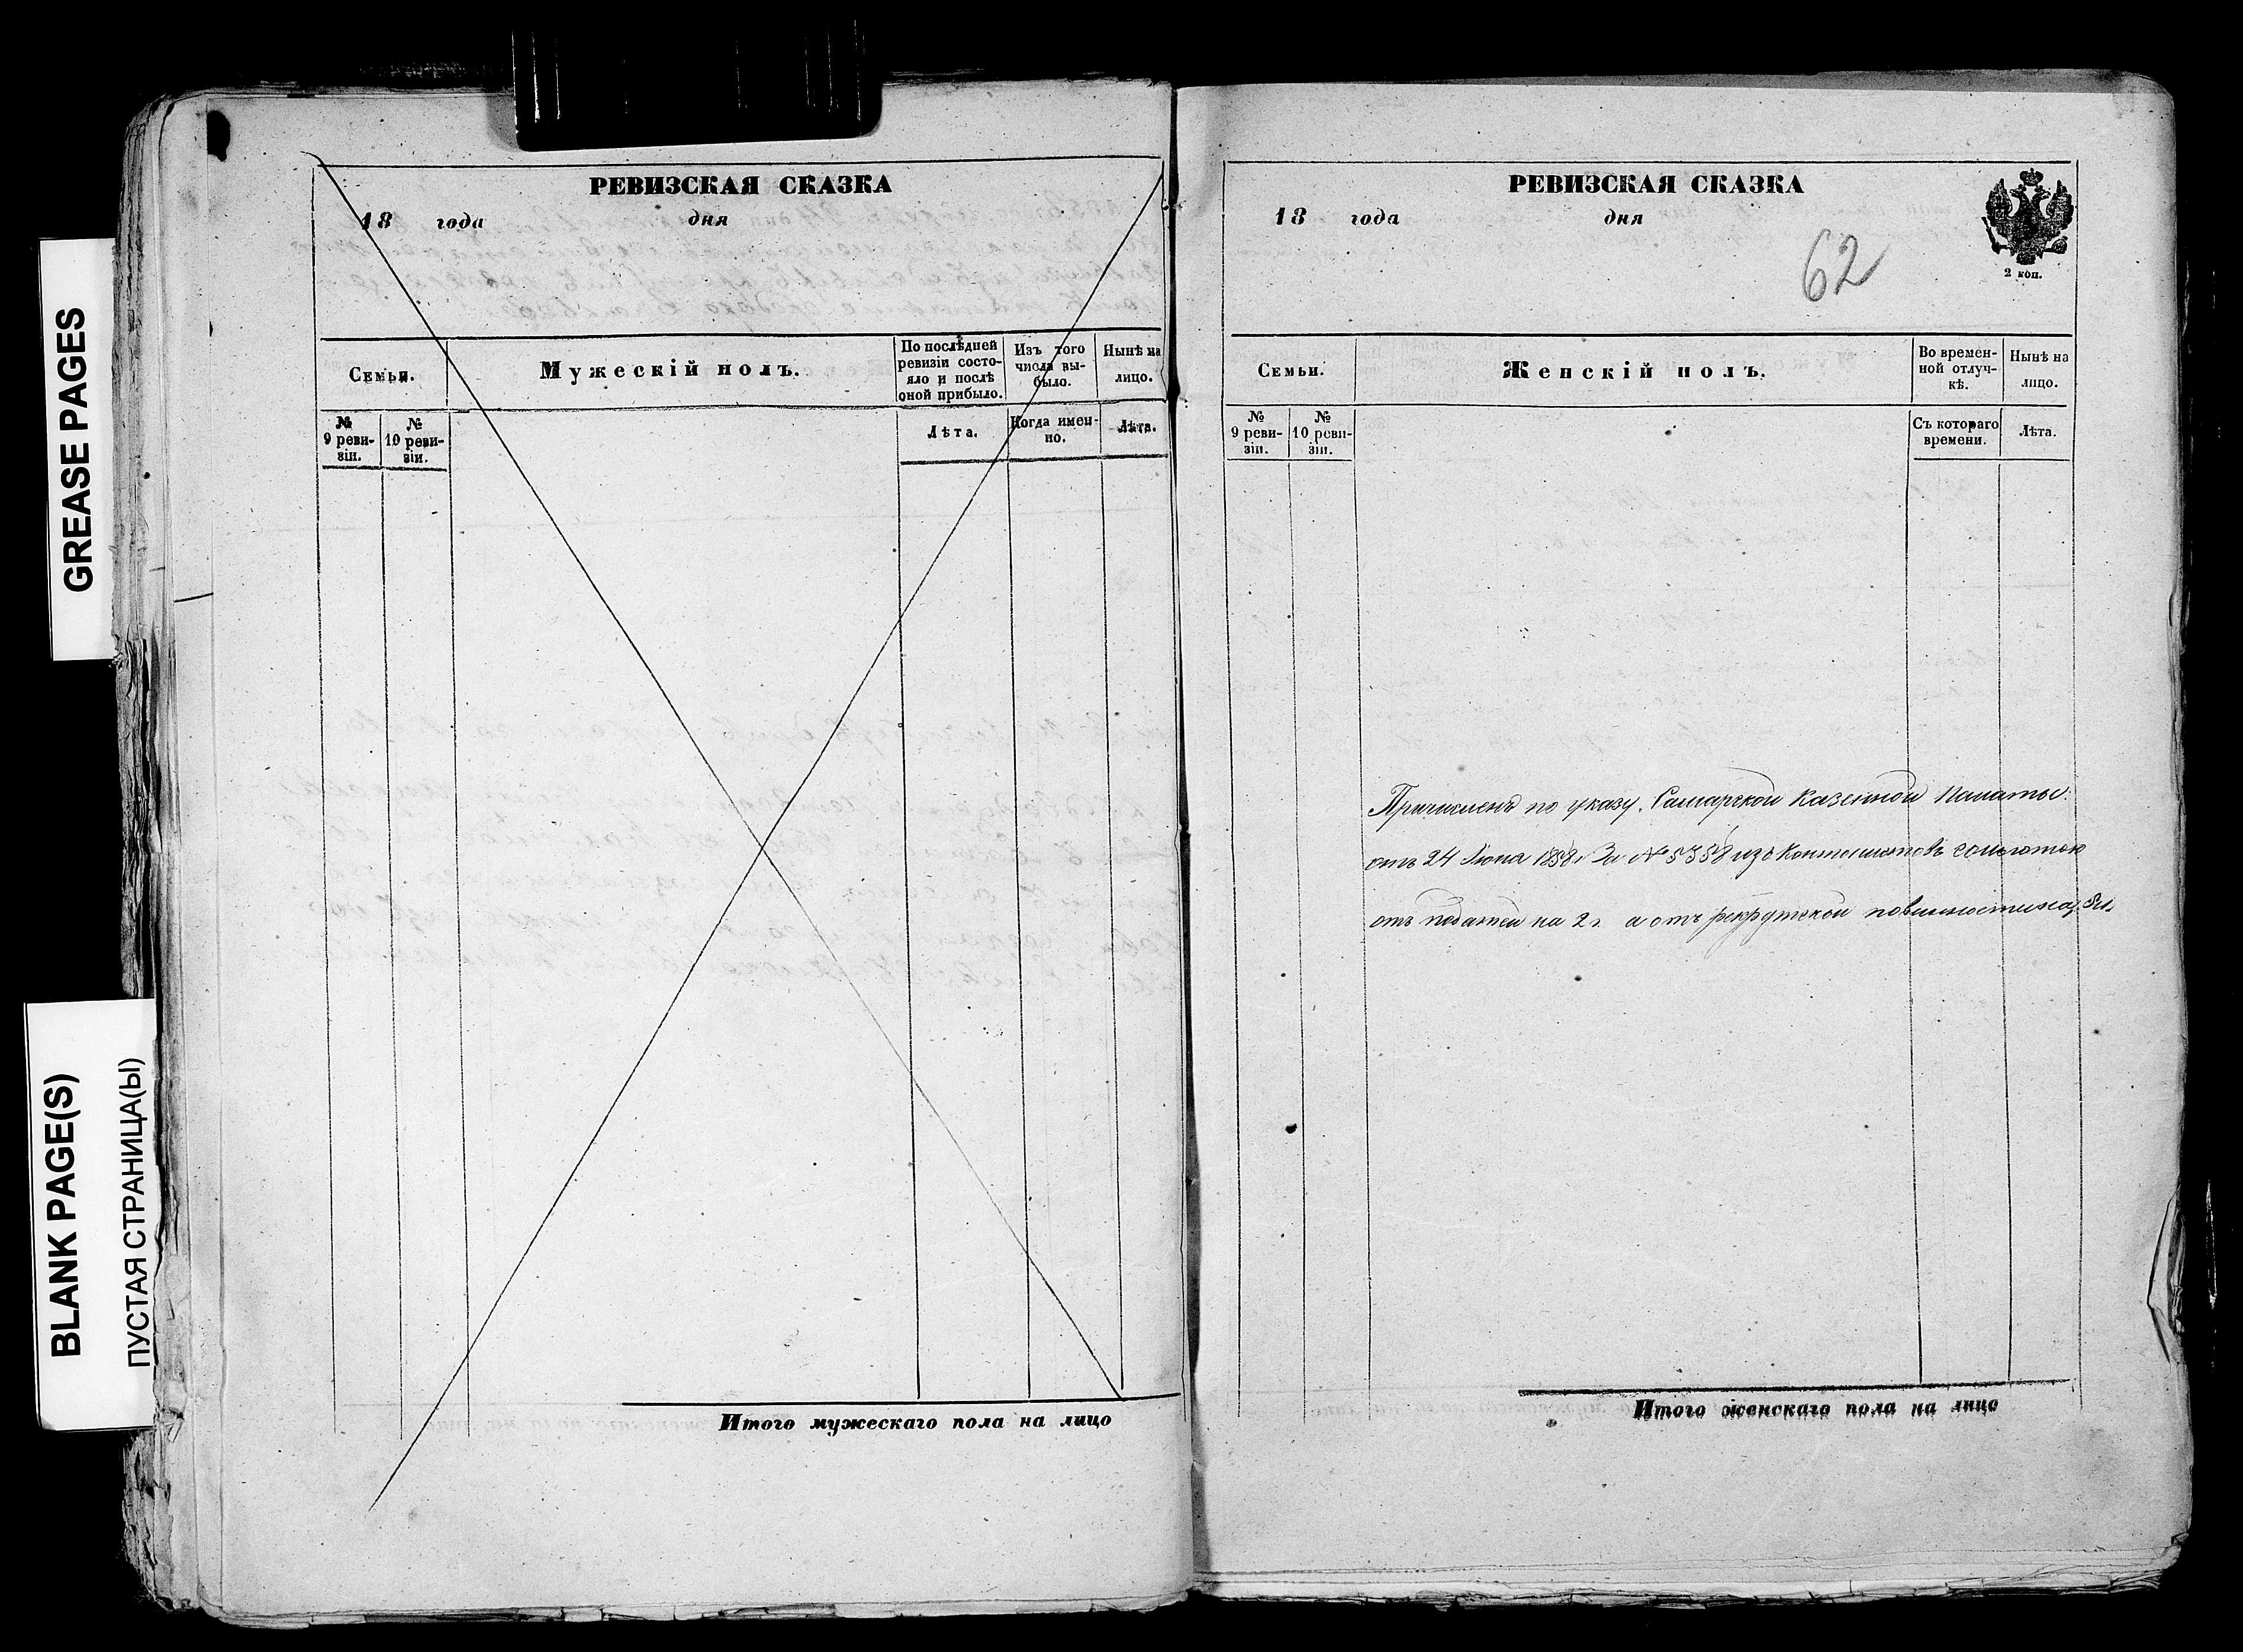 GREASE PAGES
BLANK PAGE(S)
ПУСТАЯ СТРАНИЦА(Ы)
РЕВИЗСКАЯ СКАЗКА
18 года дня
Семьи.
Мужескій полъ.
По послѣдней ревизіи состо-
яло и послѣ оной прибыло.
Изъ того числа вы-
было.
Нынѣ на лицо.
№ 9 реви-
зіи.
№ 10 реви-
зіи.
Лѣта.
Когда имен-
но.
Лѣта.
Итого мужескаго пола на лицо
РЕВИЗСКАЯ СКАЗКА
18 года дня
62
2 коп.
Семьи.
Женскій полъ.
Во времен-
ной отлуч-
кѣ.
Нынѣ на лицо.
№ 9 реви-
зіи.
№ 10 реви-
зіи.
Съ котораго времени.
Лѣта.
Причисленъ по указу Самарской Казенной Палаты
отъ 24 Іюня 1858 г. За № 5358 изъ Кантонистовъ съ льготою
отъ податей на 2 г. а отъ рекрутской повинности на 3 г.
Итого женскаго пола на лицо